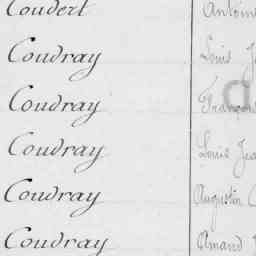 Coudert Antoine
Coudray Louis
Coudray
Coudray Louis
Coudray Augustin
Coudray Amand